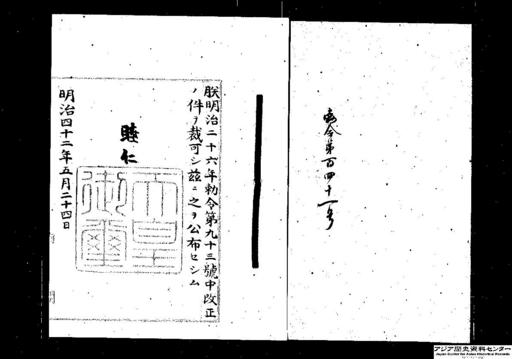 勅令第百四十一号
朕明治二十六年勅令第九十三號中改正
ノ件ヲ裁可シ茲ニ之ヲ公布セシム
睦仁
天皇御璽
明治四十二年五月二十四日
アジア歴史資料センター
Japan Center for Asian Historical Records